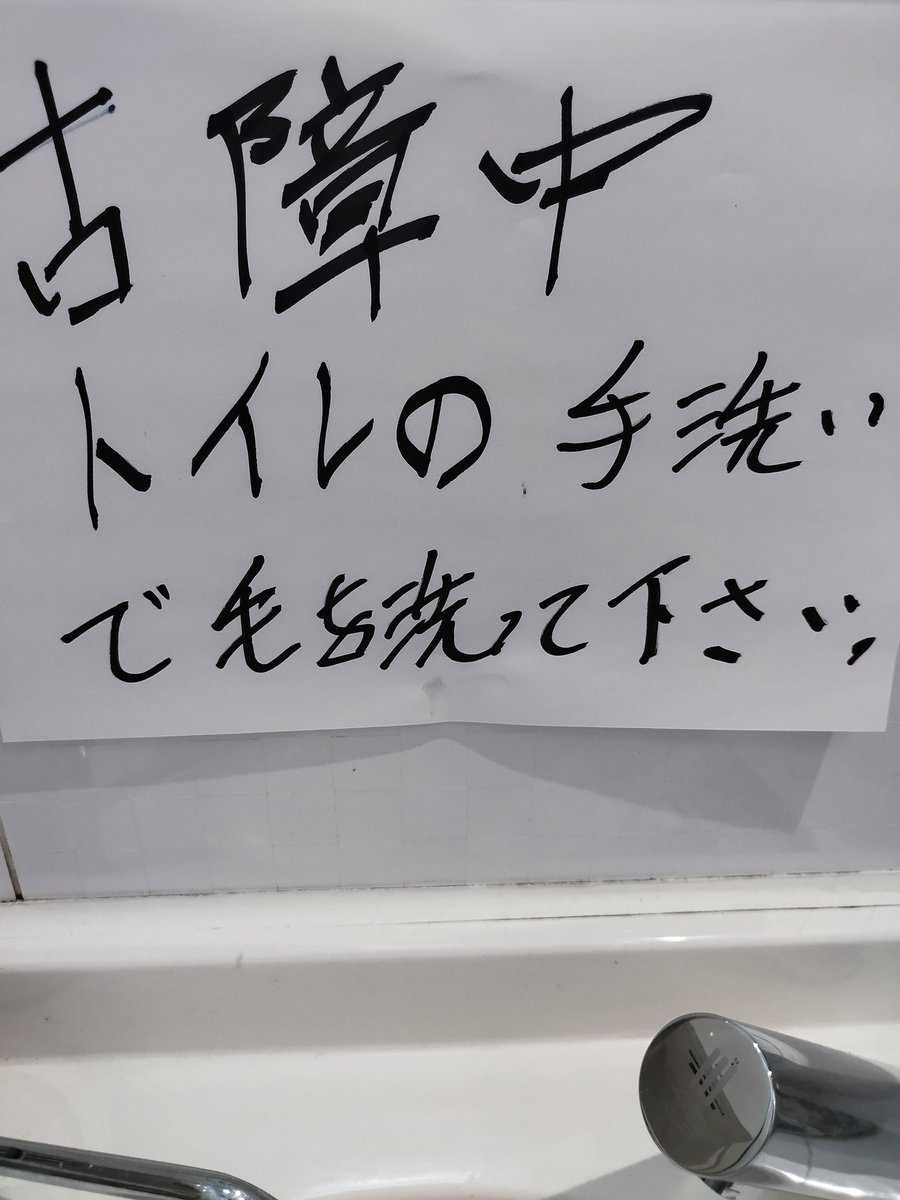 古障中
トイレの手洗い
で毛を洗って下さい。